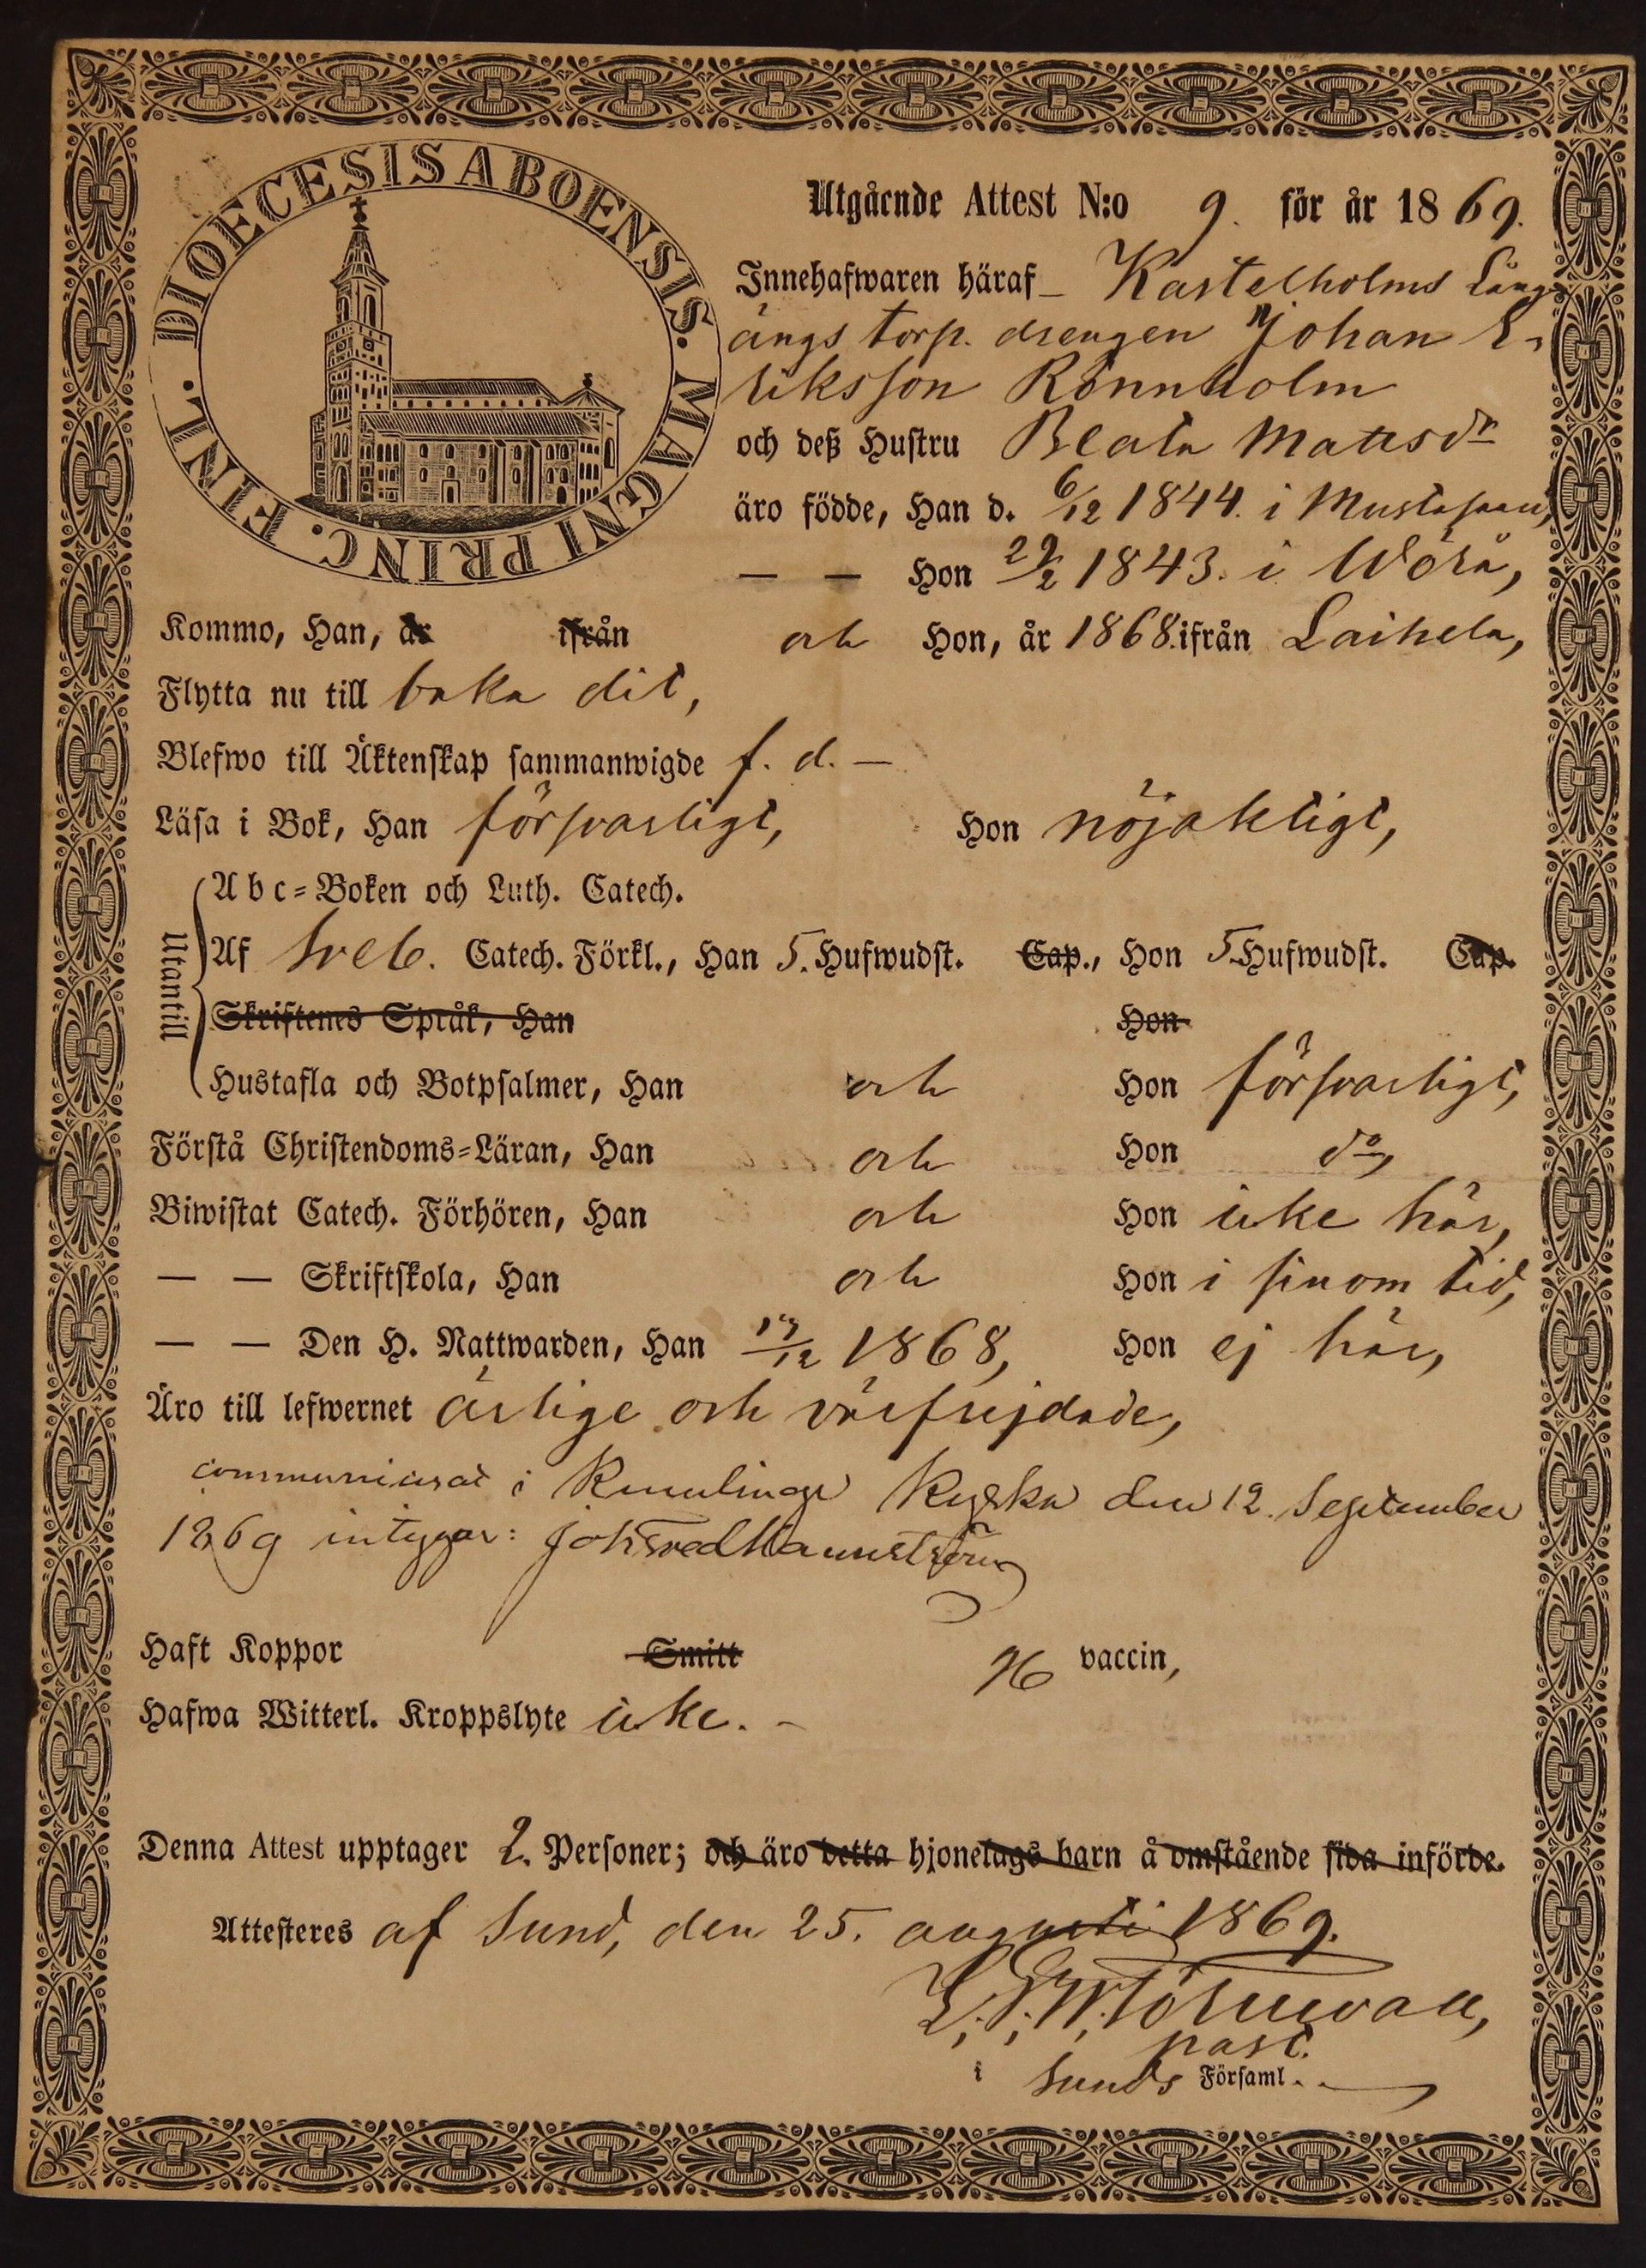 DIOECESIS ABOENSIS. MAGNI PRINC. FINL.
Utgående Attest N:o 9. för år 1869.
Innehafwaren häraf Kastelholms Lång-
ängs torp. drengen Johan E-
riksson Rönnholm
och deß Hustru Beata Mattsdr
äro födde, Han d. 6/12 1844. i Mustasaari,
— — Hon 29/2 1843. i Wörå,
Kommo, Han, år ifrån och Hon, år 1868. ifrån Laihela,
Flytta nu till baka dit,
Blefwo till Äktenskap sammanwigde f. d. —
Läsa i Bok, Han försvarligt, Hon nöjaktigt,
Utantill
Abc-Boken och Luth. Catech.
Af Sveb. Catech. Förkl., Han 5. Hufwudst. Cap., Hon 5. Hufwudst. Cap.
Skriftenes Språk, Han Hon
Hustafla och Botpsalmer, Han och Hon försvarligt,
Förstå Christendoms-Läran, Han och Hon do,
Biwistat Catech. Förhören, Han och Hon icke här,
— — Skriftskola, Han och Hon i sinom tid,
— — Den H. Nattwarden, Han 13/12 1868, Hon ej här,
Äro till lefwernet ärlige och värfrejdade,
communicerat i Kumlinge Kyrka den 12. September
1869 intygar:
Haft Koppor Smitt vaccin,
Hafwa Witterl. Kroppslyte icke. —
Denna Attest upptager 2. Personer; och äro detta hjonelags barn å omstående sida införde.
Attesteres af Sund, den 25. augusti 1869.
past.
i Sunds Församl.